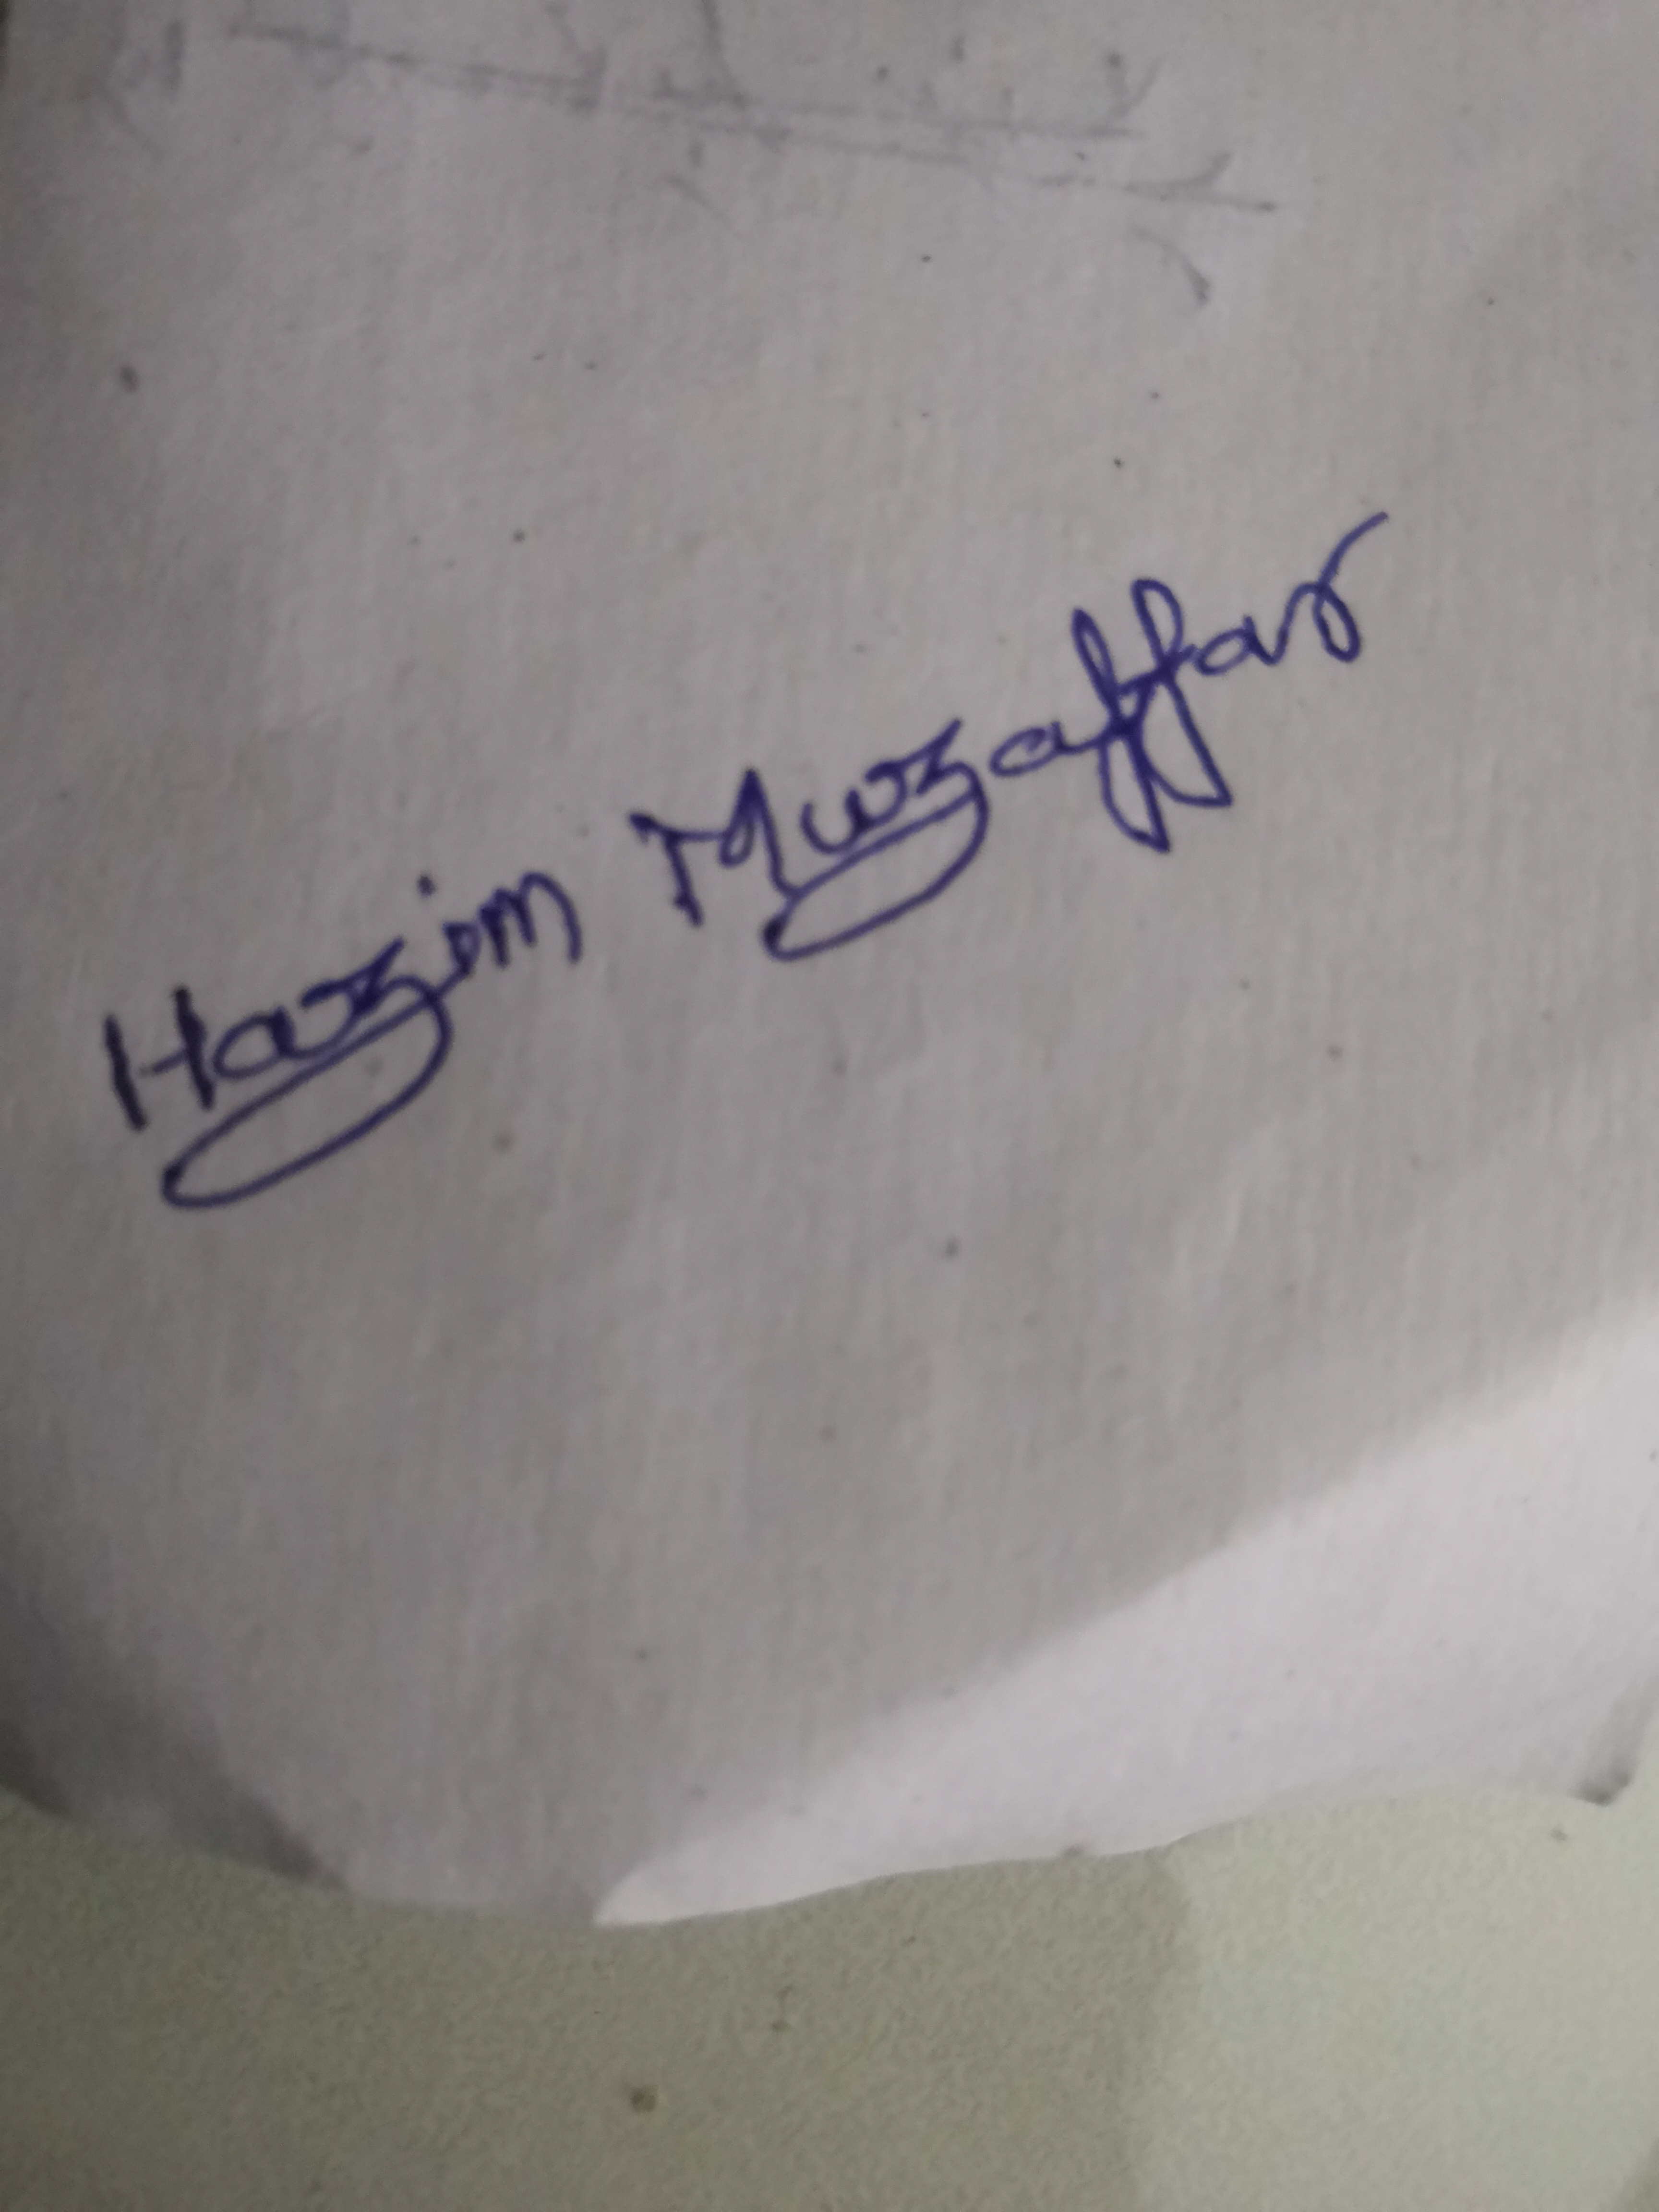 Hazim Muzaffar